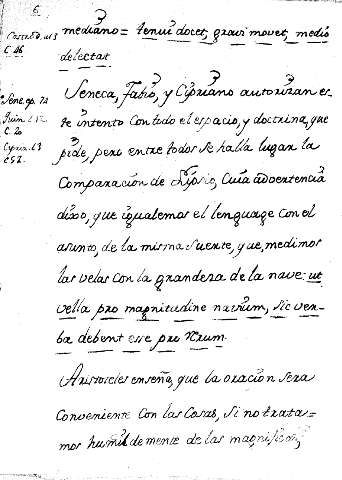 6
mediano = tenui docet, gravi movet, medio
delectat
Seneca, Fabio, y Cipriano autorizan es-
te intento con todo el espacio, y doctrina, que
pide, pero entre todos se halla lugar la
comparacion de Lipsio, cuia advertencia
dixo, que igualemos el lenguage con el
asunto, de la misma suerte, que, medimos
las velas con la grandeza de la nave: ut
vella pro magnitudine navium, sic ver-
ba debent esse pro rerum.
Aristoteles enseña, que la oracion sera
conveniente con las cosas, si no trata=
mos humildemente de las magnificas,
C. 46
Sene. ep. 74
C. 20
C 52.